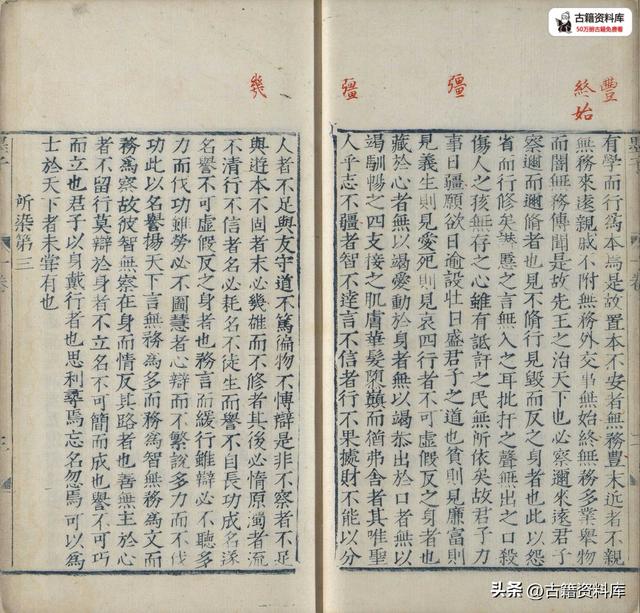 古籍资料库
50万册古籍免费看
豐
終始
彊
彊
幾
有學行為本是故置本不安者無務豐末近者不親
無務來遠親戚不附無務外交事無始終無務多業舉物
而闇無務博聞是故先王之治天下也必察邇來遠君子
察邇而邇脩者也見不脩行見毀而反之身者也此以怨
省而行修矣譖慝之言無入之耳批扞之聲無出之口殺
傷人之孩無存之心雖有詆訐之民無所依矣故君子力
事日彊願欲日逾設壯日盛君子之道也貧則見廉富則
見義生則見愛死則見哀四行者不可虛假反之身者也
藏於心者無以竭愛動於身者無以竭恭出於口者無以
竭馴暢之四支接之肌膚華髮隳顛而猶弗舍者其唯聖
人乎志不彊者智不達言不信者行不果據財不能以分
人者不足與友守道不篤徧物不愽辯是非不察者不足
與遊本不固者末必幾雄而不修者其後必惰原濁者流
不清行不信者名必耗名不徒生而譽不自長功成名遂
名譽不可虛假反之身者也務言而緩行雖辯必不聽多
力而伐功雖勞必不圖慧者心辯而不繁說多力而不伐
功此以名譽揚天下言無務為多而務為智無務為文而
務為察故彼智無察在身而情反其路者也善無主於心
者不留行莫辯於身者不立名不可簡而成也譽不可巧
而立也君子以身戴行者也思利尋焉忘名忽焉可以為
士於天下者未甞有也
所染第三
头条 @古籍资料库